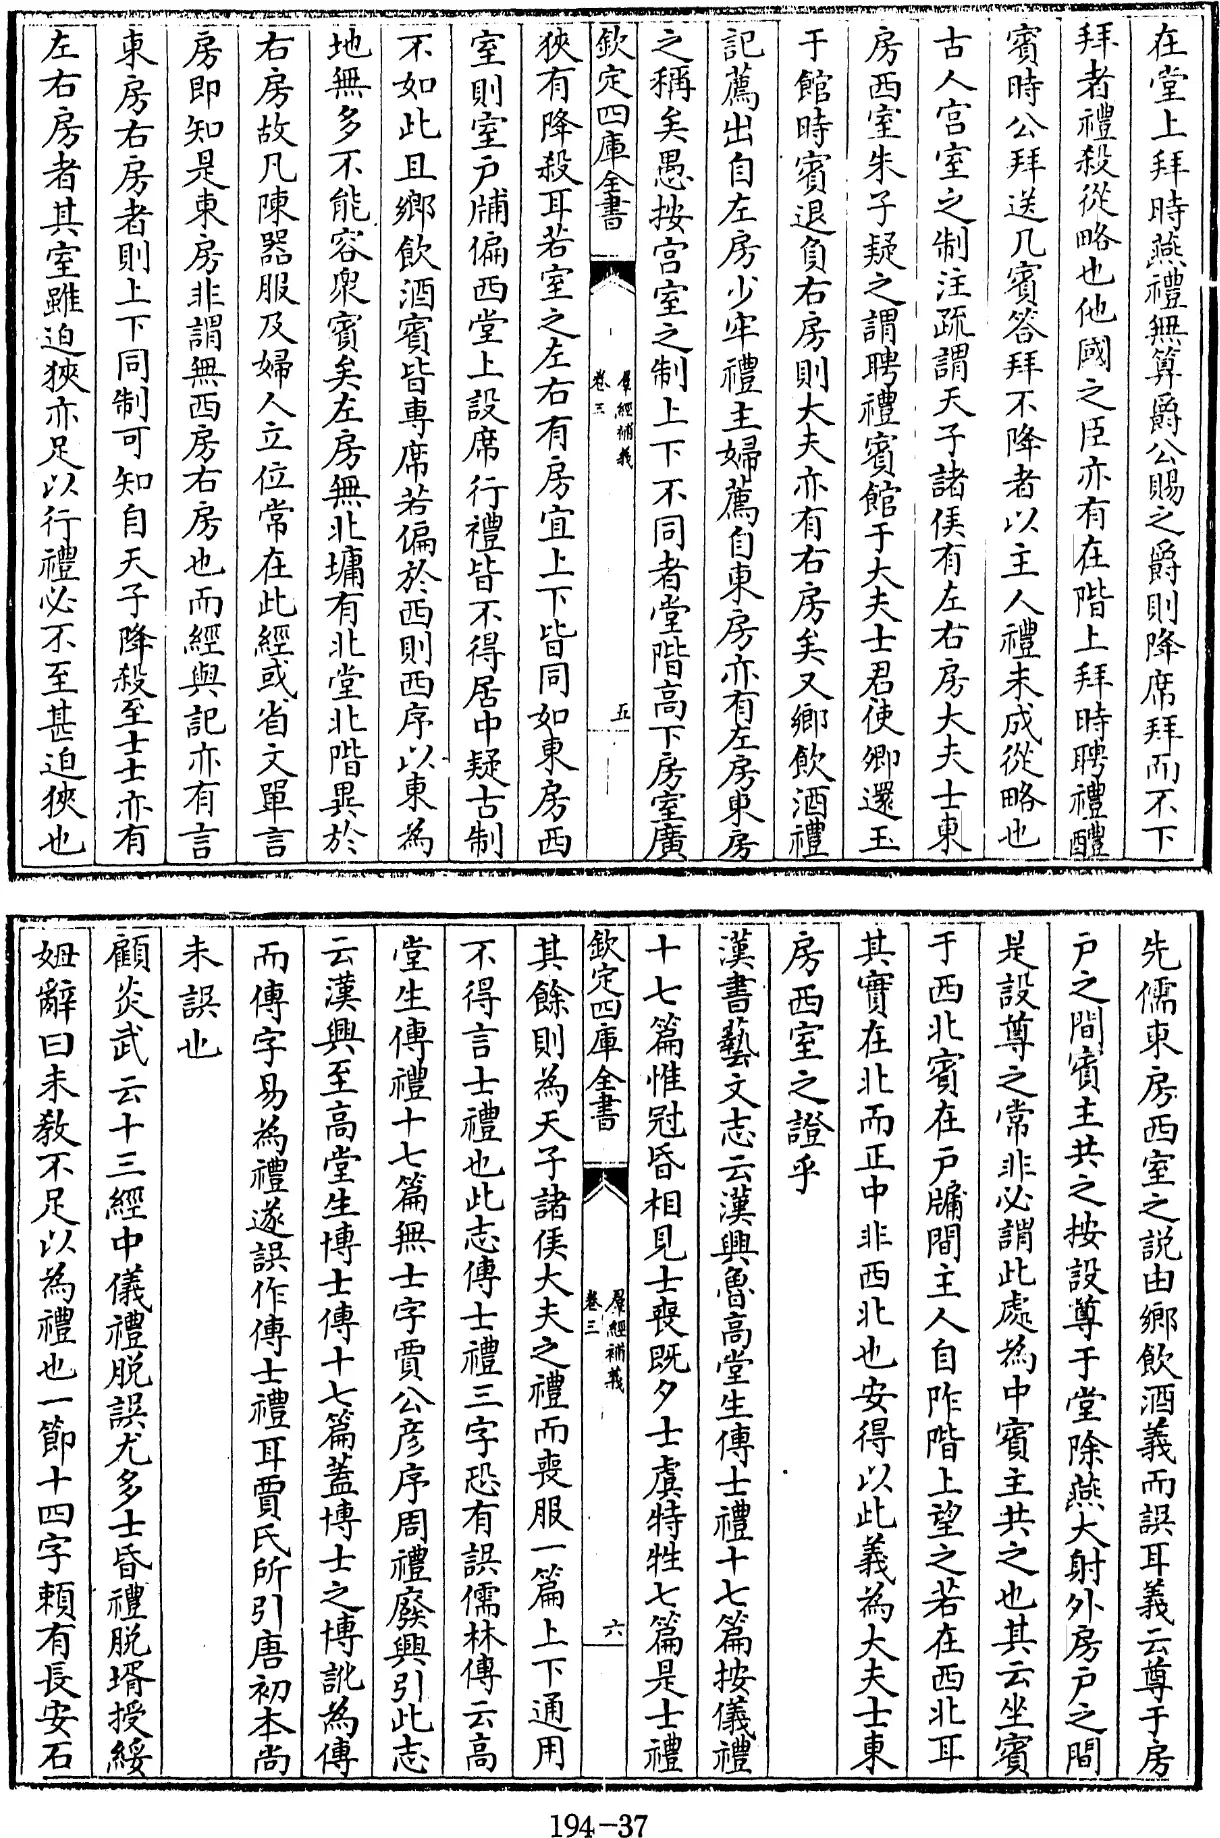 在堂上拜時燕禮無算爵公賜之爵則降席拜而不下
拜者禮殺從略也他國之臣亦有在階上拜時聘禮醴
賓時公拜送几賓答拜不降者以主人禮未成從略也
古人宫室之制注疏謂天子諸侯有左右房大夫士東
房西室朱子疑之謂聘禮賓館于大夫士君使卿還玉
于館時賓退負右房則大夫亦有右房矣又鄉飲酒禮
記薦出自左房少牢禮主婦薦自東房亦有左房東房
之稱矣愚按宫室之制上下不同者堂階高下房室廣
欽定四庫全書
羣經補義
卷三
五
狹有降殺耳若室之左右有房宜上下皆同如東房西
室則室户牖偏西堂上設席行禮皆不得居中疑古制
不如此且鄉飲酒賓皆專席若偏於西則西序以東為
地無多不能容衆賓矣左房無北墉有北堂北階異於
右房故凡陳器服及婦人立位常在此經或省文單言
房即知是東房非謂無西房右房也而經與記亦有言
東房右房者則上下同制可知自天子降殺至士士亦有
左右房者其室雖迫狹亦足以行禮必不至甚迫狹也
先儒東房西室之説由鄉飲酒義而誤耳義云尊于房
户之間賓主共之按設尊于堂除燕大射外房户之間
是設尊之常非必謂此處為中賓主共之也其云坐賓
于西北賓在户牖間主人自阼階上望之若在西北耳
其實在北而正中非西北也安得以此義為大夫士東
房西室之證乎
漢書藝文志云漢興魯高堂生傳士禮十七篇按儀禮
十七篇惟冠昏相見士喪既夕士虞特牲七篇是士禮
欽定四庫全書
羣經補義
卷三
六
其餘則為天子諸侯大夫之禮而喪服一篇上下通用
不得言士禮也此志傳士禮三字恐有誤儒林傳云高
堂生傳禮十七篇無士字賈公彦序周禮廢興引此志
云漢興至高堂生博士傳十七篇蓋博士之博訛為傳
而傳字易為禮遂誤作傳士禮耳賈氏所引唐初本尚
未誤也
顧炎武云十三經中儀禮脱誤尤多士昏禮脱壻授綏
姆辭曰未敎不足以為禮也一節十四字賴有長安石
194-37